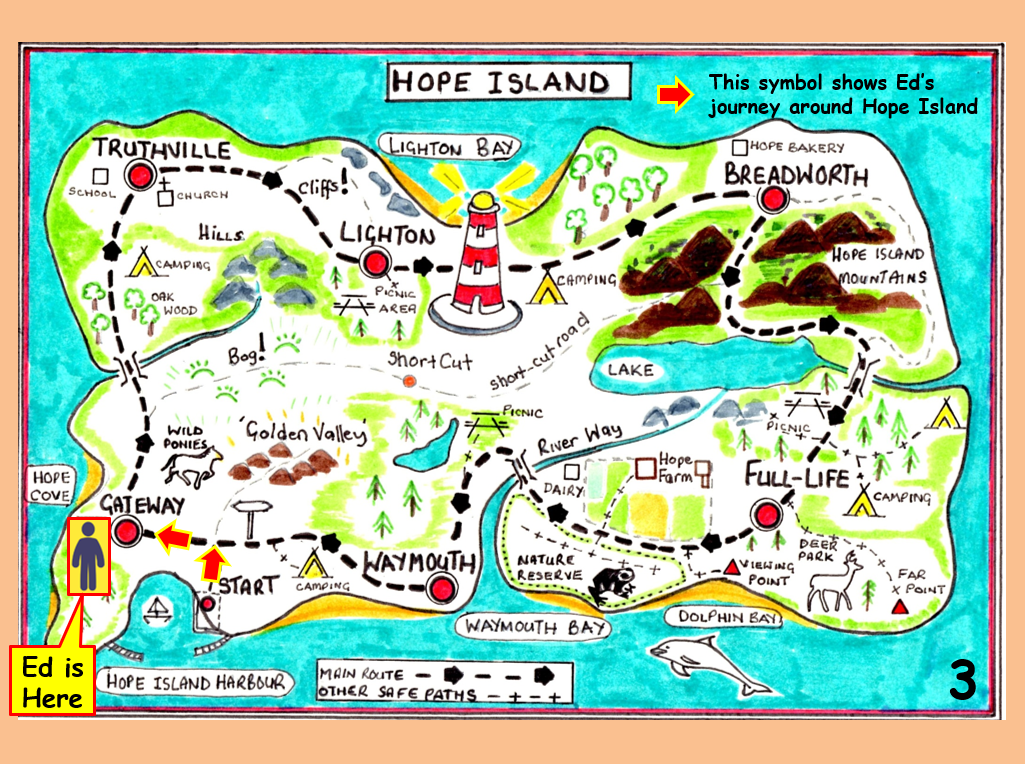 HOPE ISLAND
This symbol shows Ed's
journey around Hope Island
LIGHTON BAY
TRUTHVILLE
SCHOOL
CHURCH
Cliffs!
HOPE BAKERY
BREADWORTH
HILLS
LIGHTON
CAMPING
PICNIC
AREA
CAMPING
HOPE ISLAND
MOUNTAINS
OAK
WOOD
Bog!
Short Cut
short-cut road
LAKE
PICNIC
WILD
PONIES
'Golden Valley'
River Way
PICNIC
HOPE
COVE
DAIRY
Hope
Farm
FULL-LIFE
CAMPING
GATEWAY
START
CAMPING
WAYMOUTH
NATURE
RESERVE
VIEWING
POINT
DEER
PARK
FAR
POINT
WAYMOUTH BAY
DOLPHIN BAY
Ed is
Here
HOPE ISLAND HARBOUR
MAIN ROUTE
OTHER SAFE PATHS
3